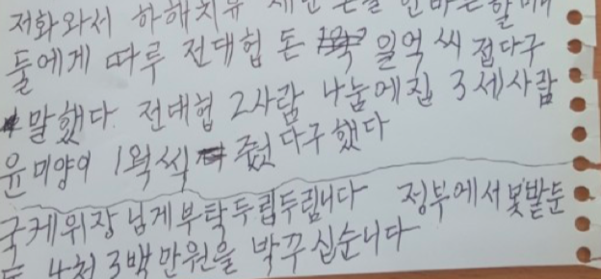 저화와서 하해치유
들에게 따루 전대협 돈 일억 씨 접다구
말했다. 전대협 2사람 나눔에집 3세사람
윤미양이 1월씩 줬다구했다
국케위장님게부탁두립두립니다 정부에서못발둔
4천3백만원을 박꾸십슨니다